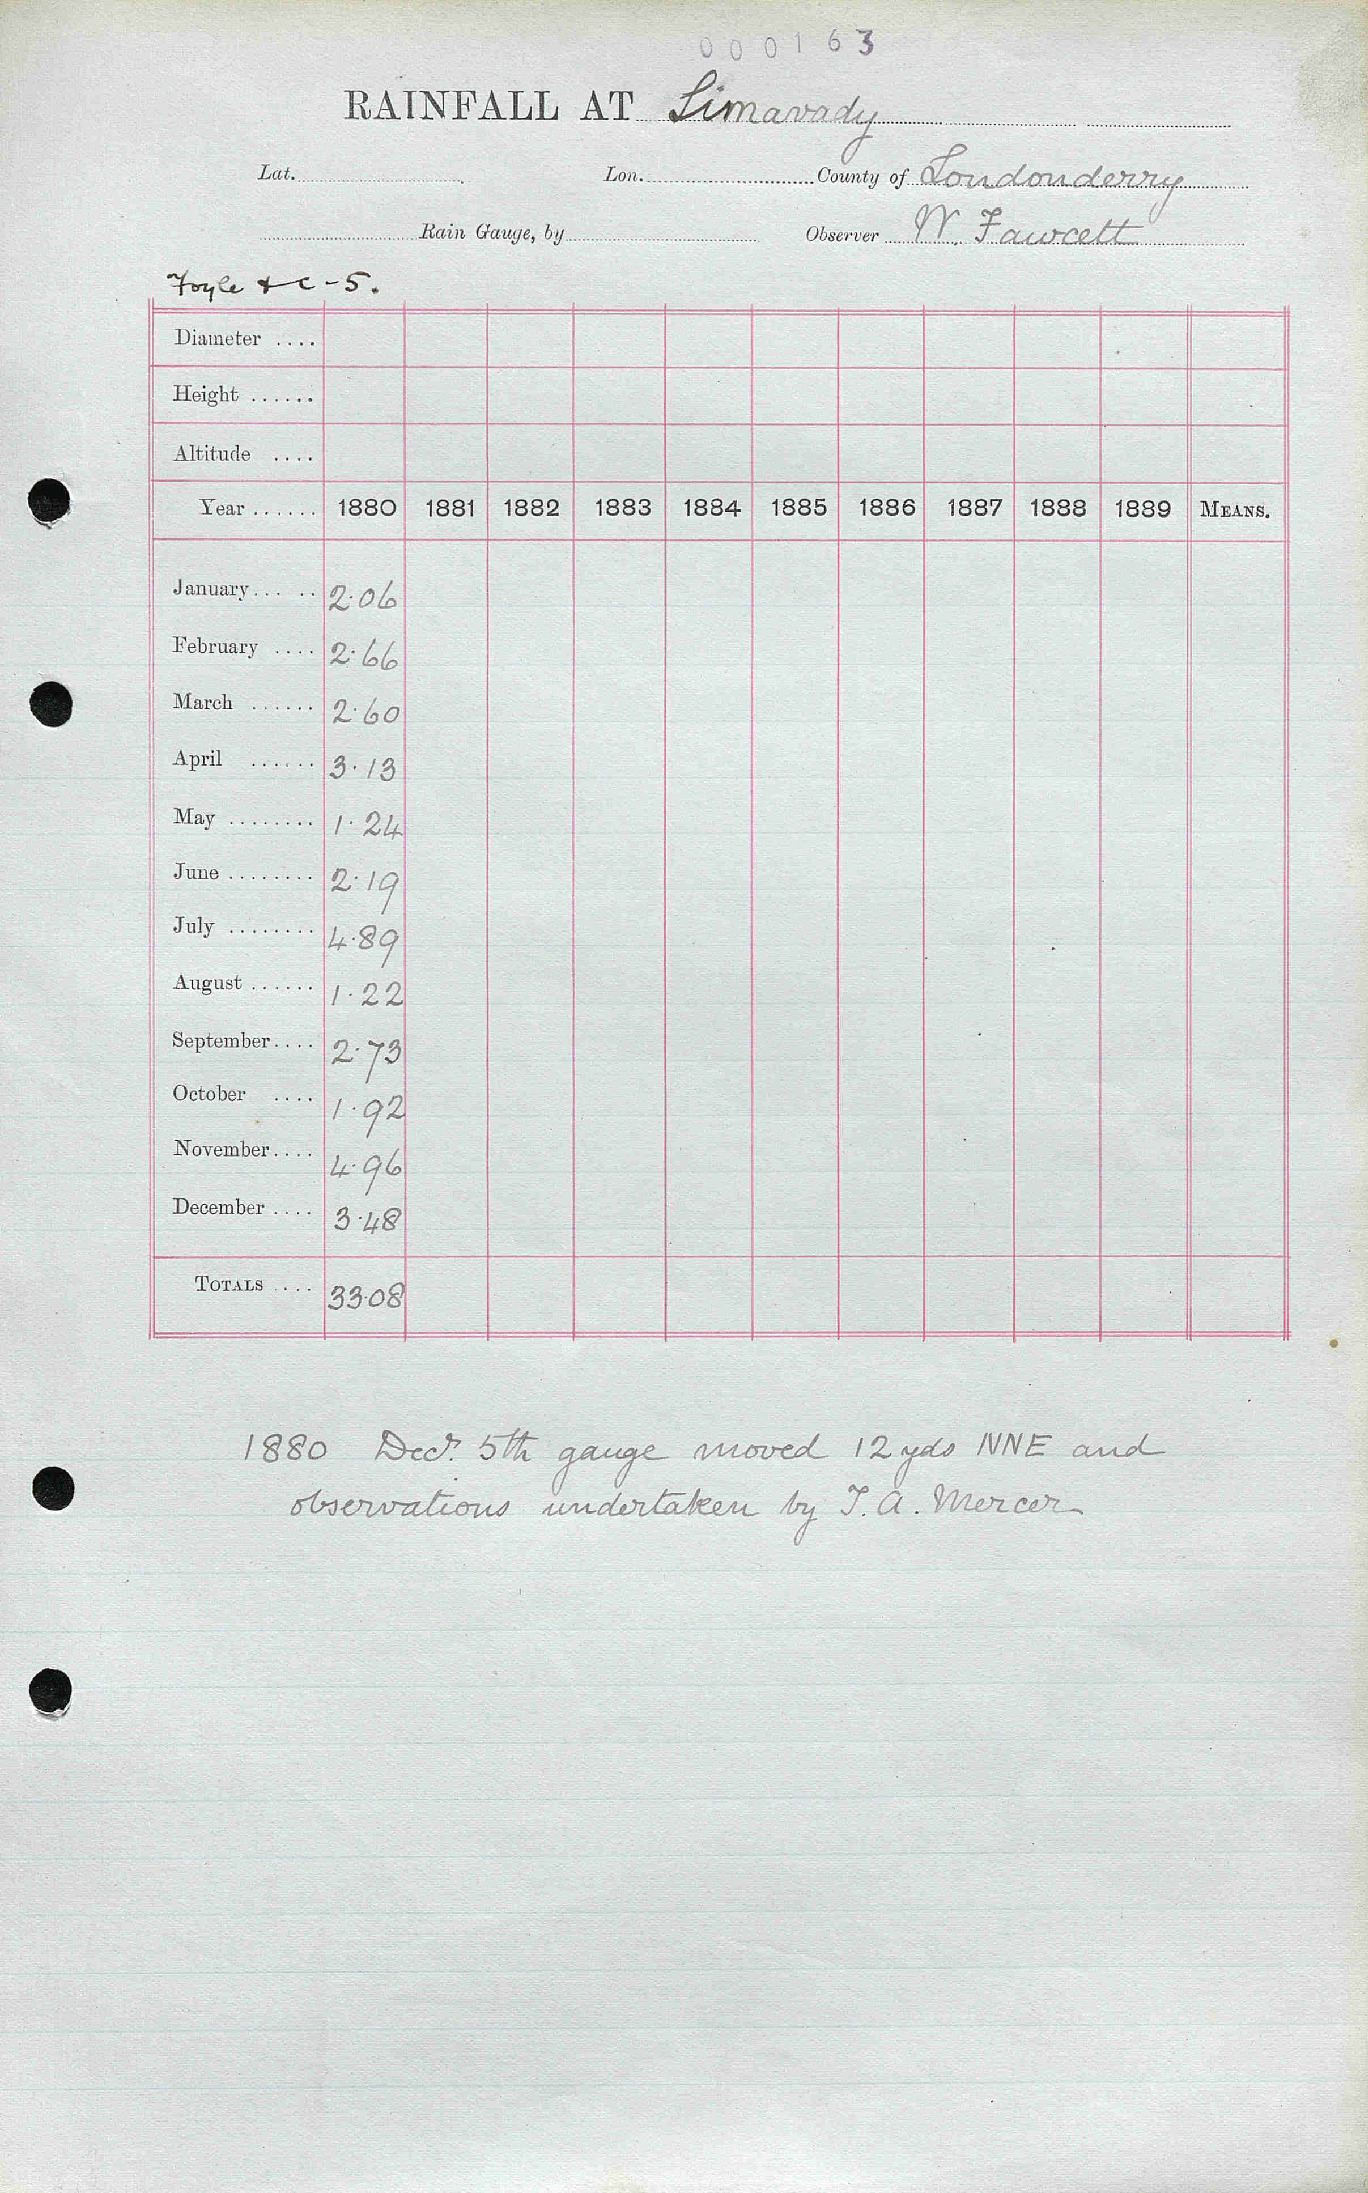 000163
RAINFALL AT Limavady
Lat. Lon. County of Londonderry
Rain Gauge, by Observer W. Fawcett
Foyle & C - 5.
Diameter ....
Height ......
Altitude ....
Year ...... 1880 1881 1882 1883 1884 1885 1886 1887 1888 1889 MEANS.
January ... .. 2.06
February .... 2.66
March ...... 2.60
April ...... 3.13
May ........ 1.24
June ........ 2.19
July ........ 4.89
August ...... 1.22
September .... 2.73
October .... 1.92
November .... 4.96
December .... 3.48
TOTALS .... 33.08
1880 Decr. 5th gauge moved 12 yds NNE and
observations undertaken by T. A. Mercer